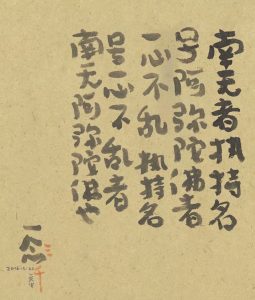 南无者执持名
号阿弥陀佛者
一心不乱执持名
号一心不乱者
南无阿弥陀佛也
一念